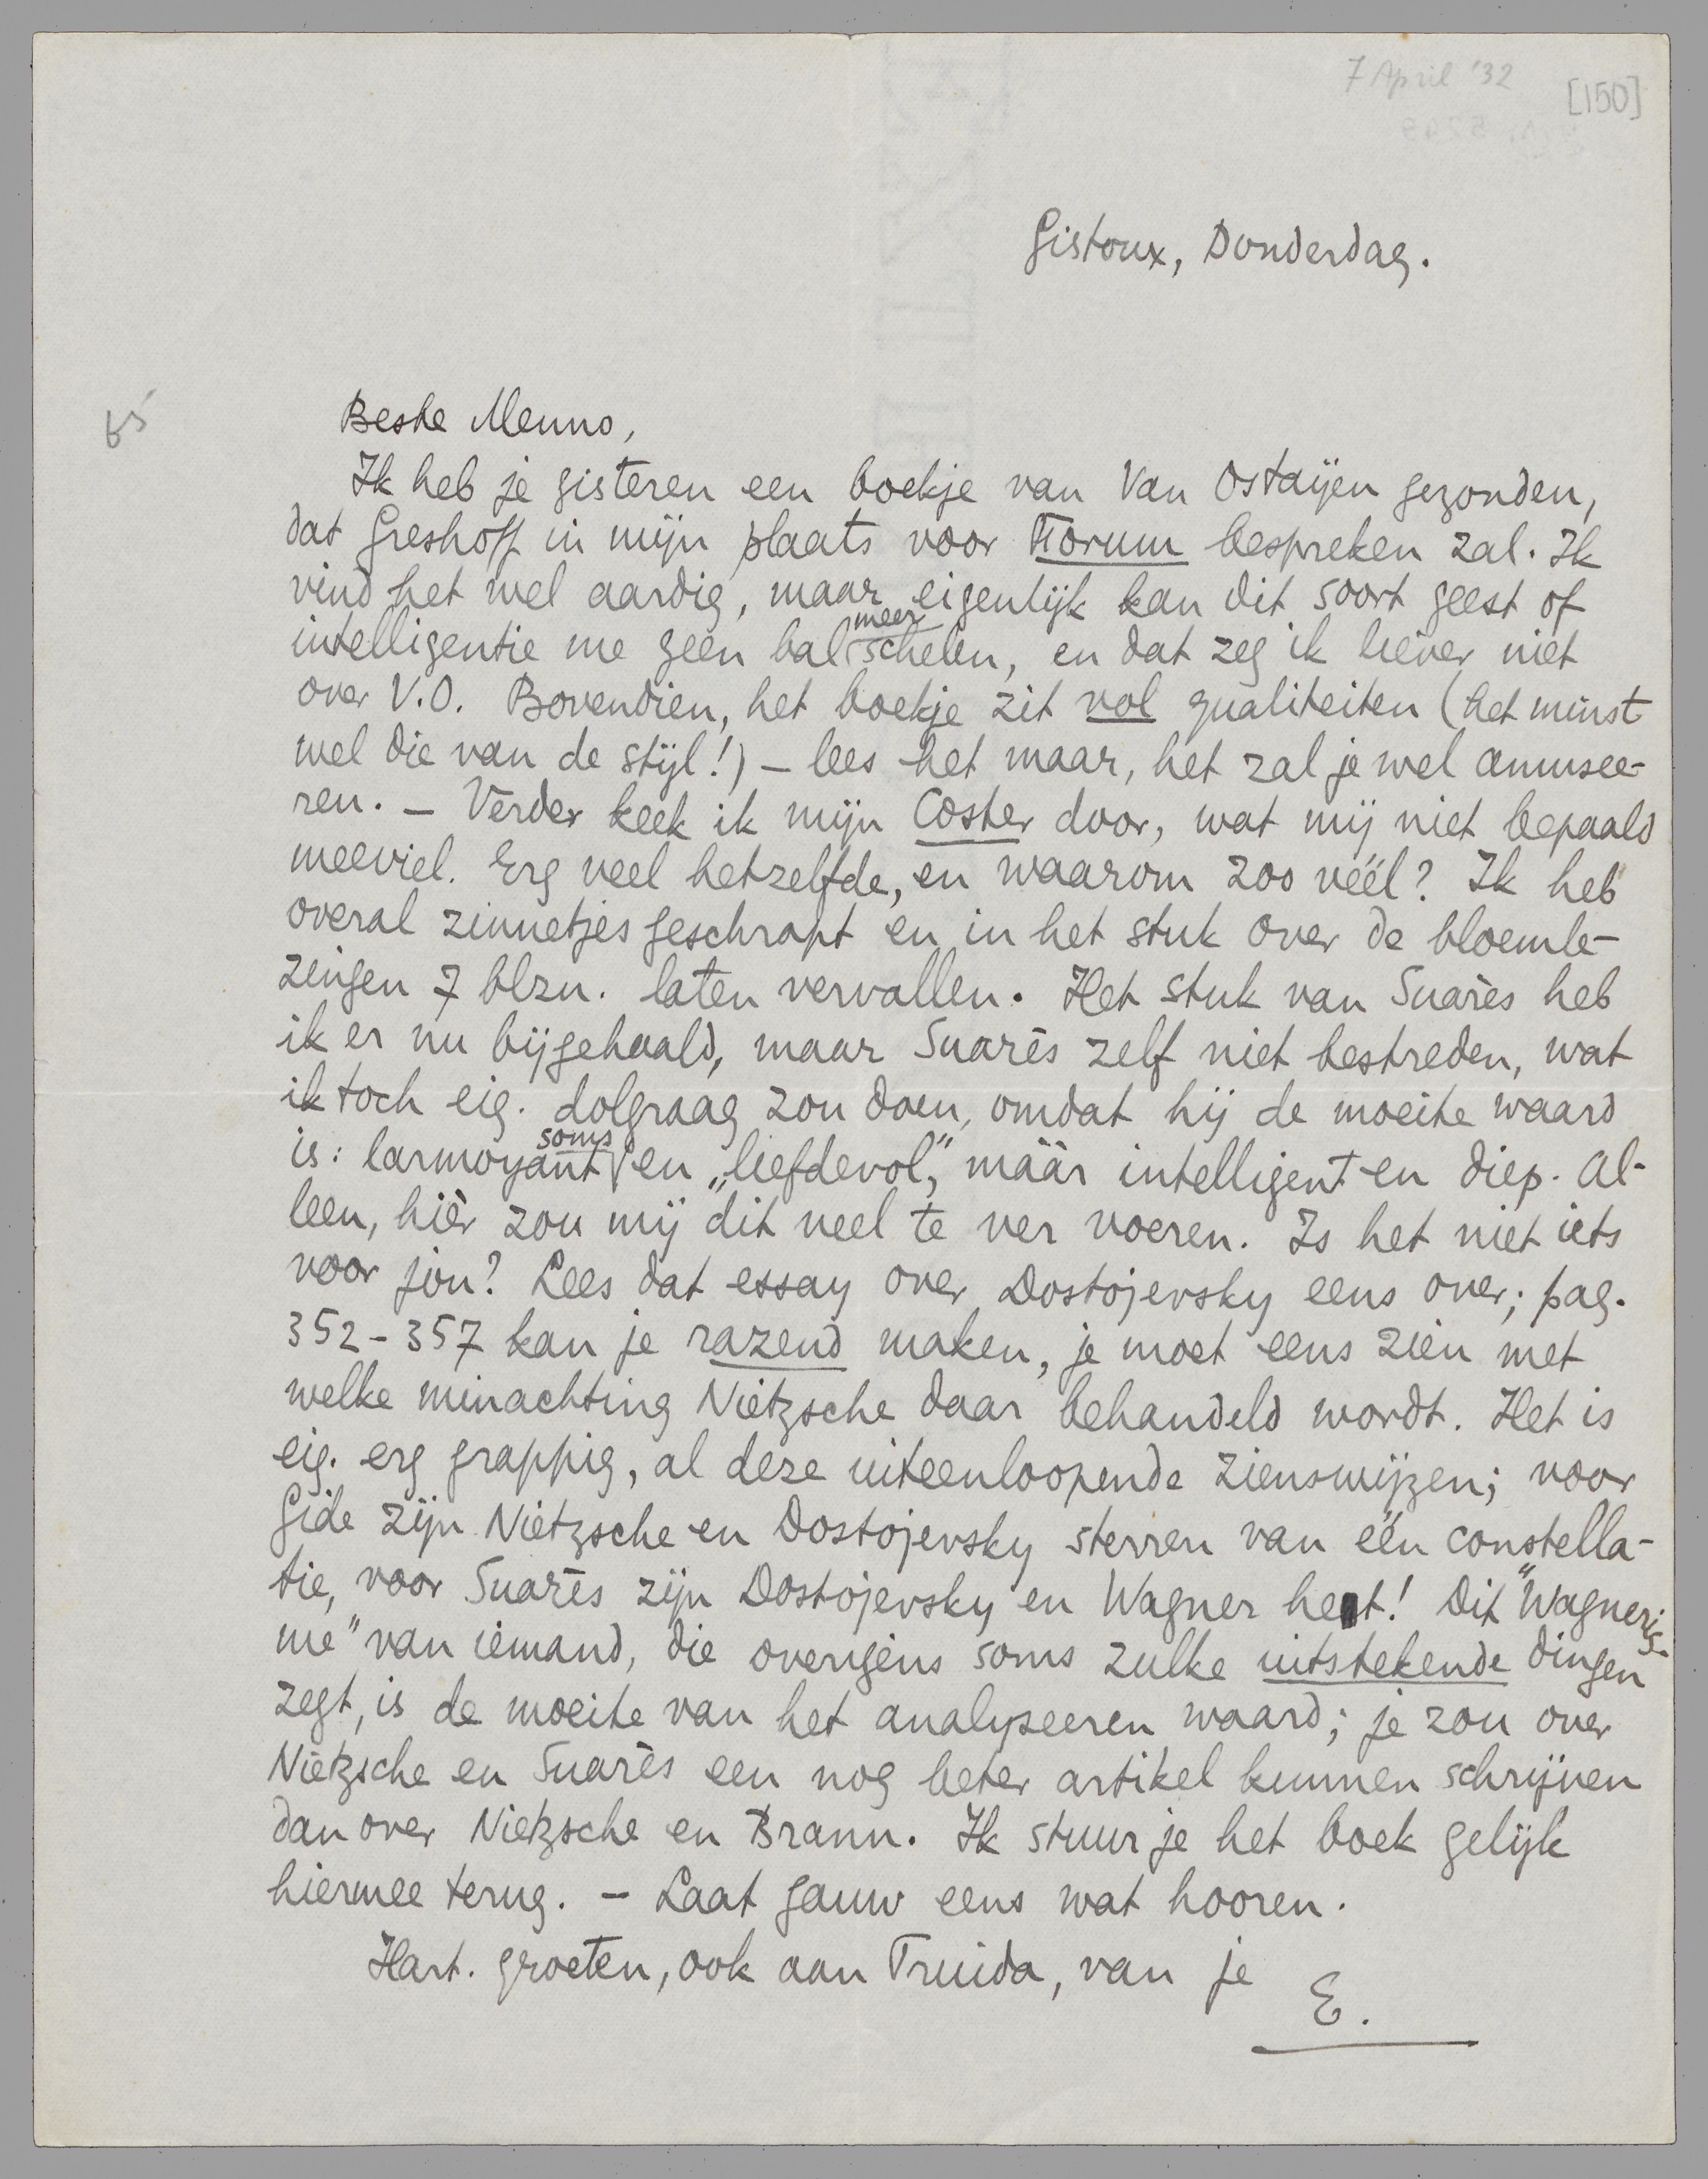 7 April '32
[150]
Gistoux, Donderdag.
Beste Menno,
Ik heb je gisteren een boekje van Van Ostaijen gezonden,
dat Greshoff in mijn plaats voor Forum bespreken zal. Ik
vind het wel aardig, maar eigenlijk kan dit soort geest of
intelligentie me geen bal meer schelen, en dat zeg ik liever niet
over V.O. Bovendien, het boekje zit vol qualiteiten (het minst
wel die van de stijl!) – lees het maar, het zal je wel amusee-
ren. – Verder keek ik mijn Coster door, wat mij niet bepaald
meeviel. Erg veel hetzelfde, en waarom zoo véél? Ik heb
overal zinnetjes geschrapt en in het stuk over de bloemle-
zingen 7 blzn. laten vervallen. Het stuk van Suarès heb
ik er nu bijgehaald, maar Suarès zelf niet bestreden, wat
ik toch eig. dolgraag zou doen, omdat hij de moeite waard
is: larmoyant soms en „liefdevol”, máár intelligent en diep. Al-
leen, hièr zou mij dit veel te ver voeren. Is het niet iets
voor jou? Lees dat essay over Dostojevsky eens over; pag.
352-357 kan je razend maken, je moet eens zien met
welke minachting Nietzsche daar behandeld wordt. Het is
eig. erg grappig, al deze uiteenloopende zienswijzen; voor
Gide zijn Nietzsche en Dostojevsky sterren van één constella-
tie, voor Suarès zijn Dostojevsky en Wagner het! Dit "Wagneris-
me" van iemand, die overigens soms zulke uitstekende dingen
zegt, is de moeite van het analyseeren waard; je zou over
Nietzsche en Suarès een nog beter artikel kunnen schrijven
dan over Nietzsche en Brann. Ik stuur je het boek gelijk
hiermee terug. – Laat gauw eens wat hooren.
Hart. groeten, ook aan Truida, van je
E.